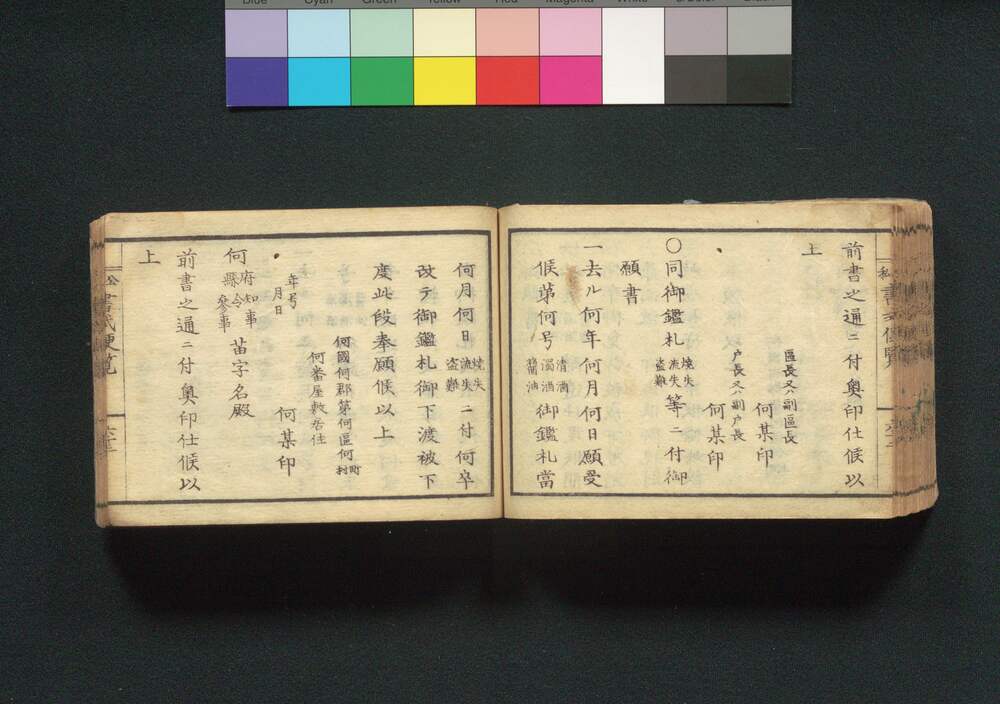 Blue Cyan Green Yellow Red Magenta White Black
前書之通ニ付奧印仕候以
上
區長又ハ副區長
何某印
戸長又ハ副戸長
何某印
〇同御鑑札
燒失
流失
盗難
等ニ付御
願書
一去ル何年何月何日願受
候第何号
清酒
濁酒
醤油
御鑑札當
何月何日
燒失
流失
盗難
ニ付何卒
改テ御鑑札御下渡被下
度此段奉願候以上
何國何郡第何區何
町
村
何番屋敷居住
年号
月日
何某印
何
府知事
縣令
參事
苗字名殿
前書之通ニ付奧印仕候以
上
公
書式便覧
私
書式便覧